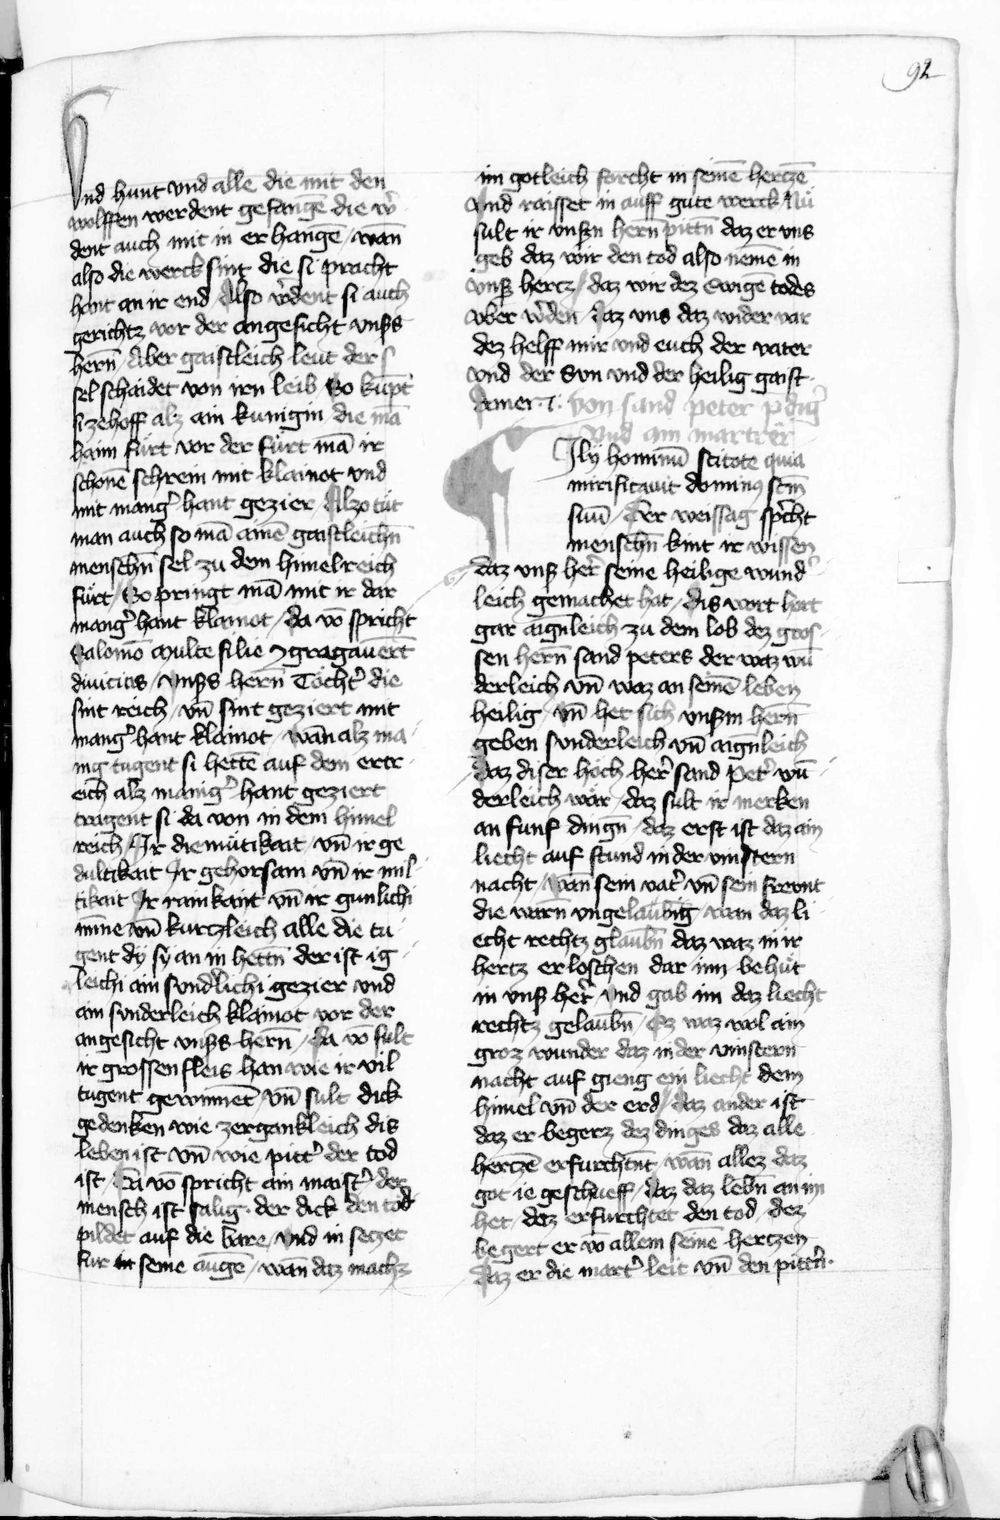 92
Vnd hunt vnd alle die mit den
wolfften werdent gefangē die w̉
dent auch mit in er hangē / wan̄
also die werck sint die si pracht
hant an ir end / Also w̉dent si auch
gerichtz vor der angesicht vnsß
hern̄ / Aber gaistleich leut der s
sel schaidet von irn leib So kūpt
si ze hoff alz ain kunigin die mā
haim fürt vor der fürt mā ir
schonē schrein mit klainot vnd
mit mang̉ hant gezier / Also tůt
man auch so mā ainē gaistleichn̄
menschn̄ sel zu dem himelreich
fürt / So pringt mā mit ir dar
mang̉ hant klainot / da vō spricht
Salomō multe filie ꝯgregauer̄t
diuicias / vnsß hern̄ Tocht̉ die
sint reich / vn̄ sint geziert mit
mang̉ hant klainot / wan̄ alz ma
nig tugent si hettē auf dem ertr
eich alz manig̉ hant geziert
tragent si da von in dem himel
reich / Ir diemütikait / vn̄ ir ge
dultikait Ir gehorsam vn̄ ir mil
tikait Ir rainkait vn̄ ir gunlichi
minne vn̄ kurtzleich alle die tu
gent dy sy an in hettn̄ der ist ig
leichi ain sund̉lichi gezier vnd
ain sunderleich klainot vor der
angesicht vnsß hern̄ / da vō sult
ir grossen fleis han wie ir vil
tugent gewinnēt / vn̄ sult dick
gedenken wie zergankleich dis
leben ist vn̄ wie pitt̉ der tod
ist / Da vō spricht ain maist̉ der
mensch ist salig der dick den tod
pildet auf die bare / vnd in setzet
fur in seine augē / wan̄ daz machz
im gotleich forcht in seinē hertzē
vnd raisset in auff gute werck Nū
sult ir vnsn̄ hern̄ pittn̄ daz er vns
geb daz wir den tod also nemē in
vnsß hertz / daz wir dez Ewigē todes
vber w̉den / daz vns daz wider var
dez helff mir vnd euch der vater
vnd der Sun vnd der heilig gaist
Amen. von sand peter p̄dig̉
vnd ain martrer
Filij hominū scitote quia
mirificauit dominꝰ scm̄
suū / Der weissag sp̄cht
menschn̄ kint ir wissen
daz vnsß her̉ seine heilige wund̉
leich gemachet hat / dis wort hort
gar aignleich zu dem lob dez gros
sen hern̄ sand peters der waz wū
derleich vn̄ waz an seinē leben
heilig / vn̄ het sich vnsm̄ hern̄
geben sunderleich vn̄ aignleich
Daz diser hoch her̉ sand pet̉ wū
derleich wär / daz sult ir merken
an funf dingn̄ / daz erst ist daz ain
liecht auf stund in der vinstern
nacht / wan̄ sein vat̉ vn̄ sein frevnt
die warn̄ vngelaubig / wan daz li
echt rechtz glaubn̄ daz waz in ir
hertz erloschen dar inn behüt
in vnsß her̉ vnd gab im daz liecht
rechtz gelaubn̄ / Ez waz wol ain
groz wunder daz in der vinstern
nacht auf gieng ein liecht dem
himel vn̄ der erd / daz ander ist
daz er begerz dez dinges daz alle
hertzē erfurchtnt / wan̄ allez daz
got ie geschueff / daz daz lebn̄ an im
het / daz erfurchtet den tod / dez
begert er vō allem seinē hertzen
Daz er die mart̉ leit vn̄ den pittn̉